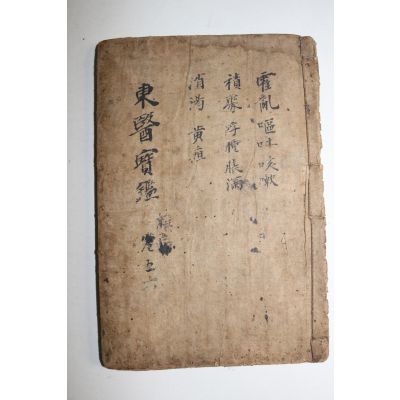 霍亂 嘔吐 咳嗽
積聚 浮腫 脹滿
消渴 黃疸
東醫寶鑑
卷五六